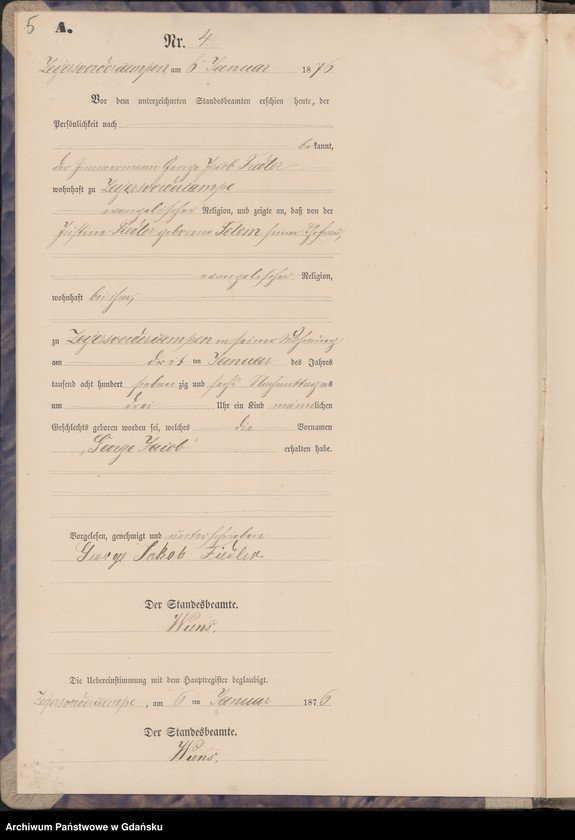 5 A.
Nr. 4
Zeyersvorderkampen am 6 Januar 1876
Vor dem unterzeichneten Standesbeamten erschien heute, der
Persönlichkeit nach
bekannt,
der Zimmermann George Jacob Fiedler
wohnhaft zu Zeyersvorderkampe
evangelischer Religion, und zeigte an, daß von der
Justine Fiedler geborene seiner Ehefrau,
evangelischer Religion,
wohnhaft bei ihm,
zu Zeyersvorderkampen in seiner Wohnung
am drit ten Januar des Jahres
tausend acht hundert sieben zig und sechs Nachmittags
um drei Uhr ein Kind männlichen
Geschlechts geboren worden sei, welches die Vornamen
„George Jacob“
erhalten habe.
Vorgelesen, genehmigt und unterschrieben
George Jakob Fiedler.
Der Standesbeamte.
Wiens.
Die Uebereinstimmung mit dem Hauptregister beglaubigt.
Zeyersvorderkampe, am 6 ten Januar 1876
Der Standesbeamte.
Wiens.
Archiwum Państwowe w Gdańsku